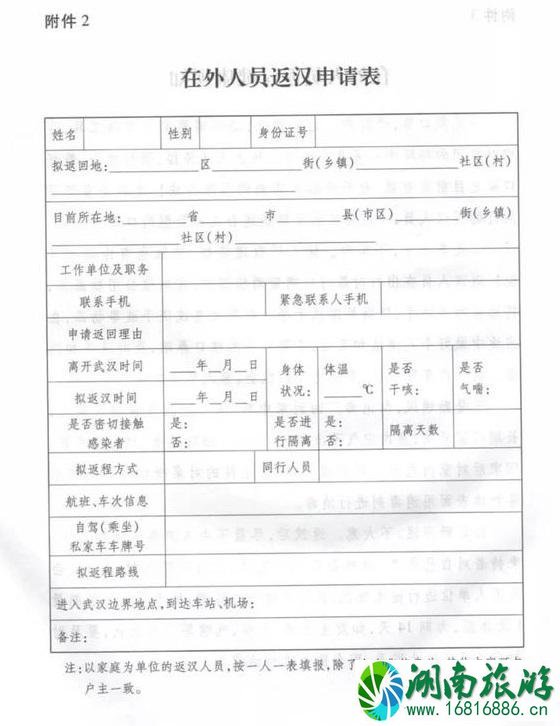 附件2
在外人员返汉申请表
姓名 性别 身份证号
拟返回地:________区________街(乡镇)________社区(村)
目前所在地:______省______市______县(市区)______街(乡镇)
________社区(村)________
工作单位及职务
联系手机 紧急联系人手机
申请返回理由
离开武汉时间 ___年__月__日 身体状况: 体温____℃ 是否干咳: 是否气喘:
拟返汉时间 ___年__月__日
是否密切接触感染者 是: 否: 是否进行隔离 是: 否: 隔离天数
拟返程方式 同行人员
航班、车次信息
自驾(乘坐)
私家车车牌号
拟返程路线
进入武汉边界地点,到达车站、机场:
备注:
注:以家庭为单位的返汉人员,按一人一表填报,除了
户主一致。
湖南旅游
www.16816886.cn